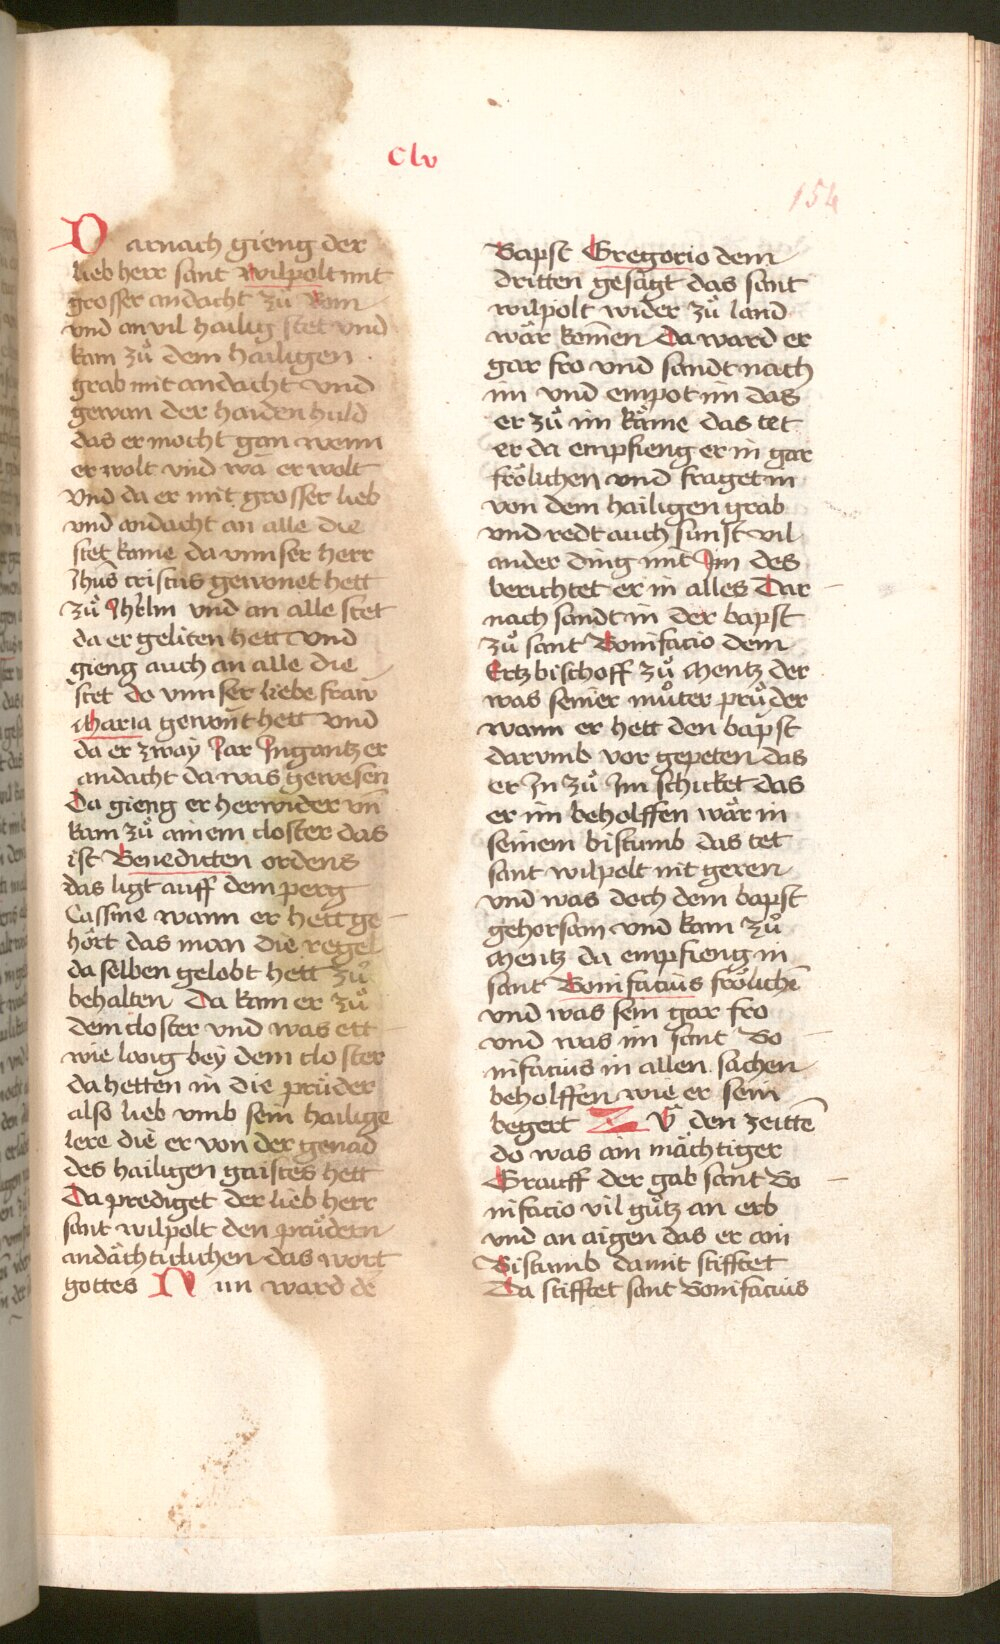 Clv
154
Darnach gieng der
lieb herr sant wilpolt mit
grosser andacht zů Rom
vnd an vil hailig stet vnd
kam zů dem hailigen
grab mit andacht vnd
gewan der haiden huld
das er mocht gan wenn
er wolt vnd wa er wolt
vnd da er mit grosser lieb
vnd andacht an alle die
stet kome da vnnser herr
Jhus cristus gewonet hett
zů Jhrlm vnd an alle stet
da er geliten hett vnd
gieng auch an alle die
stet do vnnser liebe fraw
Maria gewont hett vnd
da er zway Jar Jngantzer
andacht da was gewesen
Da gieng er herwider vn̄
kam zů ainem closter das
ist Benedicten ordens
das ligt auff dem perg
Cassine wann er hett ge
hört das man die regel
da selben gelobt hett zů
behalten Da kam er zů
dem closter vnd was ett
wie lang bey dem closter
da hetten in die prüder
also lieb vmb sein hailige
lere die er von der genad
des hailigen gaistes hett
Da prediget der lieb herr
sant wilpolt den prüdern
andächticlichen das wort
gottes Nun ward dē
Bapst Gregorio dem
dritten gesagt das sant
wilpolt wider zů land
wär komen Da ward er
gar fro vnd sandt nach
im vnd empot im das
er zů im käme das tet
er da empfieng er in gar
frölichen vnd fraget in
von dem hailigen grab
vnd redt auch sunst vil
ander ding mit Jm des
berichtet er in alles Dar
nach sandt in der bapst
zů sant Bonifacio dem
Ertzbischoff zů Mentz der
was seiner můter průder
wann er hett den bapst
darvmb vor gepeten das
er Jn zů Jm schicket das
er im beholffen wär in
seinem bistumb das tet
sant wilpolt nit geren
vnd was doch dem bapst
gehorsam vnd kam zů
Mentz da empfieng in
sant Bonifacius frölichē
vnd was sein gar fro
vnd was im sant Bo
nifacius in allen sachen
beholffen wie er sein
begert Zů den zeittē
do was ain mächtiger
Grauff der gab sant Bo
nifacio vil gůtz an erb
vnd an aigen das er ain
Bistumb damit stifftet
Da stifftet sant Bonifacius